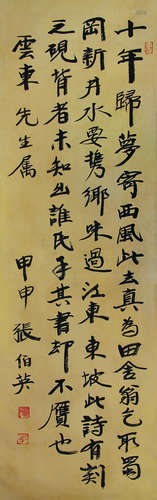 十年歸夢寄西風此去真為田舍翁乞取蜀
岡新井水要携鄉味過江東東坡此詩有刻
之硯背者未知出誰氏手其書却不贗也
雲東先生属
甲申張伯英